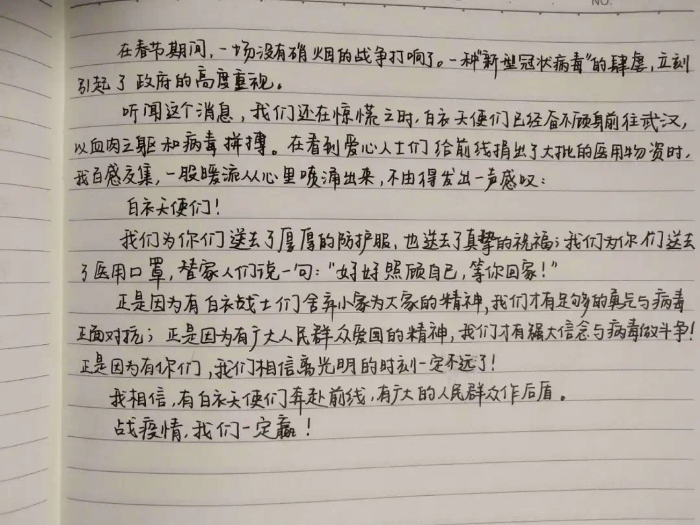 NO.
在春节期间，一场没有硝烟的战争打响了。一种“新型冠状病毒”的肆虐，立刻
引起了政府的高度重视。
听闻这个消息，我们还在惊慌之时，白衣天使们已经奋不顾身前往武汉，
以血肉之躯和病毒拼搏。在看到爱心人士们给前线捐出了大批的医用物资时，
我百感交集，一股暖流从心里喷涌出来，不由得发出一声感叹：
白衣天使们！
我们为你们送去了厚厚的防护服，也送去了真挚的祝福；我们为你们送去
了医用口罩，替家人们说一句：“好好照顾自己，等你回家！”
正是因为有白衣战士们舍弃小家为大家的精神，我们才有足够的勇气与病毒
正面对抗；正是因为有广大人民群众爱国的精神，我们才有强大信念与病毒做斗争！
正是因为有你们，我们相信离光明的时刻一定不远了！
我相信，有白衣天使们奔赴前线，有广大的人民群众作后盾。
战疫情，我们一定赢！